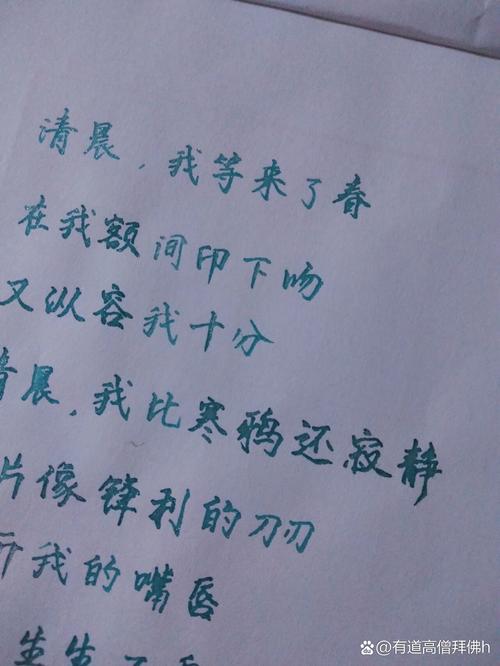 清晨，我等来了春
在我额间印下吻
又纵容我十分
清晨，我比寒鸦还寂静
片像锋利的刀刃
我的嘴唇
生生
@有道高僧拜佛h